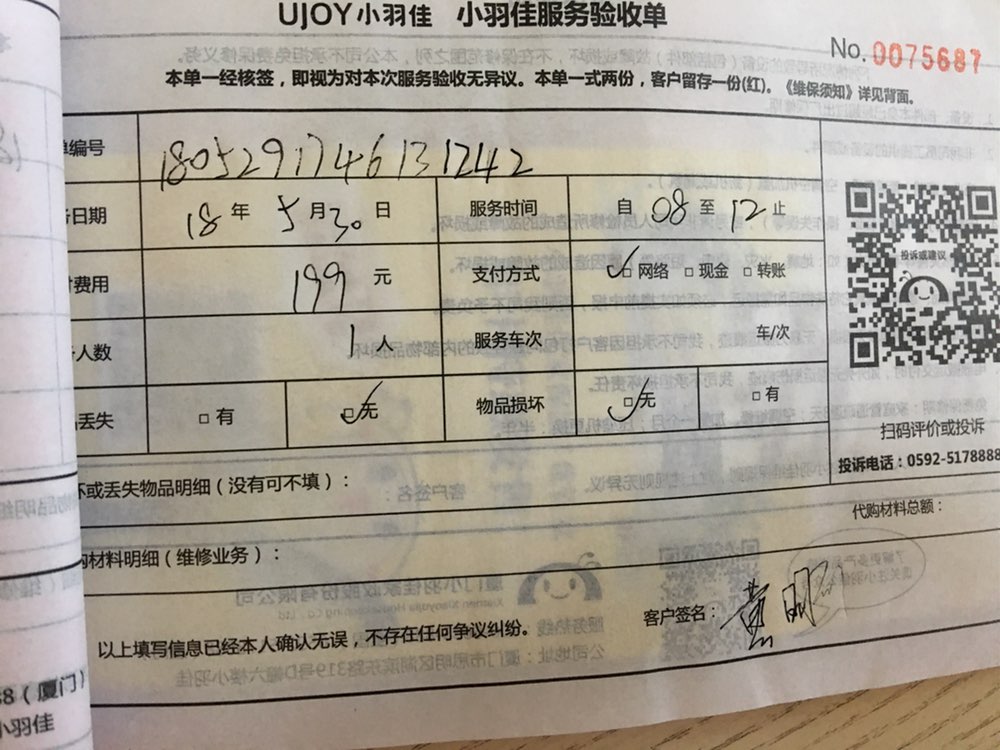 UJOY小羽佳 小羽佳服务验收单
No. 0075687
本单一经核签，即视为对本次服务验收无异议。本单一式两份，客户留存一份(红)。《维保须知》详见背面。
编号 1805291746131242
日期 18 年 5 月 30 日 服务时间 自 08 至 12 止
费用 199 元 支付方式 ✓□ 网络 □ 现金 □ 转账
人数 1 人 服务车次 车/次
丢失 □ 有 □✓无 物品损坏 □✓无 □ 有
投诉或建议
扫码评价或投诉
投诉电话：0592-5178888
坏或丢失物品明细（没有可不填）：
代购材料总额：
购材料明细（维修业务）：
客户签名：黄明
以上填写信息已经本人确认无误，不存在任何争议纠纷。
68（厦门）
小羽佳